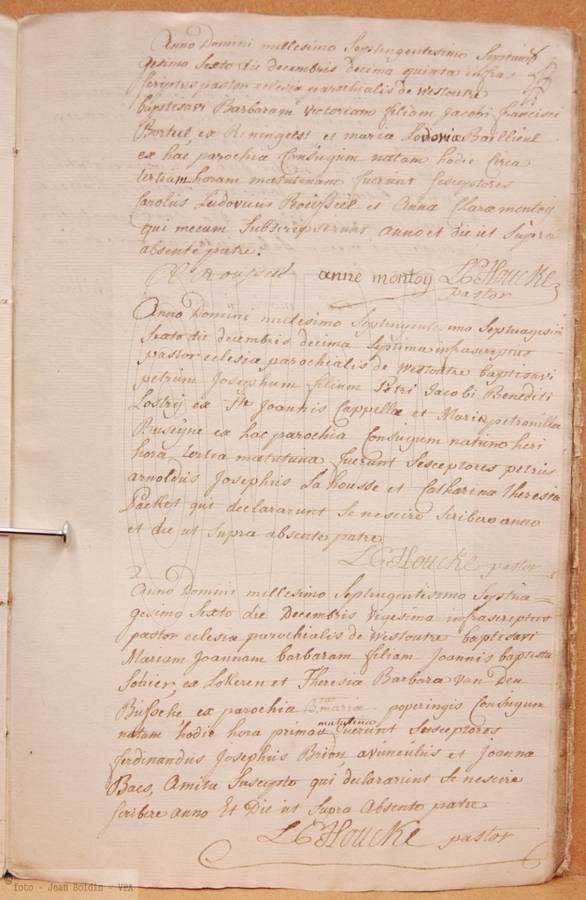 Anno Domini millesimo Septingentesimo Septua
gesimo Sexto die decembris decima quinta infras
scriptus pastor eclesiæ parochialis de Westoutre
baptisavi Barbaram Victoriam filiam Jacobi Francisci
Bortul, ex Reningelst et mariæ Lodoviæ Baillieul
ex hac parochia Conjugum natam hodie Circa
tertiam horam matutinam fuerunt suscepstores
Carolus Ludovicus Roussel et Anna Claræ montoy
qui mecum Subscripserunt anno et die ut Supra
absente patre.
C L Roussel anne montoy L C Houcke
pastor
Anno Domini millesimo Septingentesimo Septuagesimo
Sexto die decembris decima Septima infrascriptus
pastor eclesiæ parochialis de Westoutre baptisavi
petrum Josephum filium Petri Jacobi Benedicti
ex Ste Joannis Cappellæ et Mariæ petronillæ
ex hac parochia Conjugum natum heri
hora tertia matutina fuerunt Susceptores petrus
arnoldus Josephus La housse et Catharina Theresia
Packet qui declararunt Se nescire Scribere anno
et die ut Supra absente patre
L C Houcke pastor
Anno Domini millesimo Septingentesimo Septua=
gesimo Sexto die Decembris Vigesima infrascriptus
pastor eclesiæ parochialis de Westoutre baptisavi
Mariam Joannam barbaram filiam Joannis baptistæ
Sohier, ex Lokeren et Theresiæ Barbaræ Van Den
Bussche, ex parochia B.tæ mariæ poperingis Conjugum
natam hodie hora prima matutina fuerunt Susceptores
ferdinandus Josephus Brion avunculus et Joanna
Baes, Amita Suscepto qui declararunt Se nescire
Scribere anno Et Die ut Supra Absente patre
L C Houcke pastor
© foto - Jean Boldin - VPA